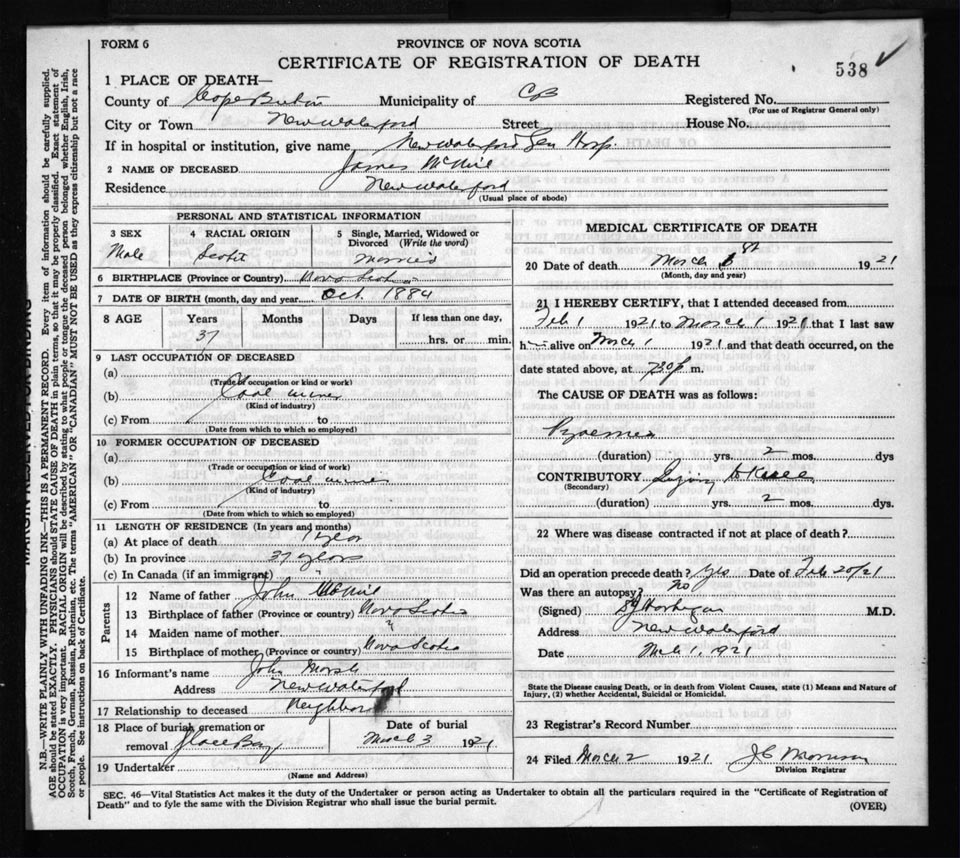 FORM 6
PROVINCE OF NOVA SCOTIA
CERTIFICATE OF REGISTRATION OF DEATH
538
1 PLACE OF DEATH—
County of Cape Breton Municipality of CB Registered No.
(For use of Registrar General only)
City or Town New Waterford Street House No.
If in hospital or institution, give name New Waterford Gen Hosp.
2 NAME OF DECEASED James McNeil
Residence New Waterford
(Usual place of abode)
PERSONAL AND STATISTICAL INFORMATION
3 SEX 4 RACIAL ORIGIN 5 Single, Married, Widowed or Divorced (Write the word)
Male Scotch Married
6 BIRTHPLACE (Province or Country) Nova Scotia
7 DATE OF BIRTH (month, day and year) Oct. 1884
8 AGE Years Months Days If less than one day,
37 hrs. or min.
9 LAST OCCUPATION OF DECEASED
(a)
(Trade of occupation or kind or work)
(b) Coal miner
(Kind of industry)
(c) From to
(Date from which to which so employed)
10 FORMER OCCUPATION OF DECEASED
(a)
(Trade or occupation or kind of work)
(b) Coal miner
(Kind of industry)
(c) From to
(Date from which to which so employed)
11 LENGTH OF RESIDENCE (In years and months)
(a) At place of death 1 year
(b) In province 37 years
(c) In Canada (if an immigrant)
Parents
12 Name of father John McNeil
13 Birthplace of father (Province or country) Nova Scotia
14 Maiden name of mother ?
15 Birthplace of mother (Province or country) Nova Scotia
16 Informant's name John Marsh
Address New Waterford
17 Relationship to deceased Neighbor
18 Place of burial, cremation or removal Glace Bay
Date of burial March 3 1921
19 Undertaker
(Name and Address)
MEDICAL CERTIFICATE OF DEATH
20 Date of death March 1921
(Month, day and year)
21 I HEREBY CERTIFY, that I attended deceased from
Feb 1 1921 to March 1 1921 that I last saw
h alive on Mch 1 1921 and that death occurred, on the
date stated above, at 730 p m.
The CAUSE OF DEATH was as follows:
Pyaemia
(duration) yrs. 2 mos. dys
CONTRIBUTORY Injury to Knee
(Secondary)
(duration) yrs. 2 mos.
22 Where was disease contracted if not at place of death?
Did an operation precede death? Yes Date of Feb 20/21
Was there an autopsy? No
(Signed) M.D.
Address New Waterford
Date Mch 1, 1921
State the Disease causing Death, or in death from Violent Causes, state (1) Means and Nature of Injury, (2) whether Accidental, Suicidal or Homicidal.
23 Registrar's Record Number
24 Filed March 2 1921 J C Morrison
Division Registrar
SEC. 46—Vital Statistics Act makes it the duty of the Undertaker or person acting as Undertaker to obtain all the particulars required in the "Certificate of Registration of
Death" and to fyle the same with the Division Registrar who shall issue the burial permit.
(OVER)
N.B.—WRITE PLAINLY WITH UNFADING INK—THIS IS A PERMANENT RECORD. Every item of information should be carefully supplied.
AGE should be stated EXACTLY. PHYSICIANS should STATE CAUSE OF DEATH in plain terms, so that it may be properly classified. Exact statement of
OCCUPATION is very important. RACIAL ORIGIN will be described by stating to what people or tongue the deceased person belonged whether English, Irish,
Scotch, French, German, Russian, Ruthenian, etc. The terms "AMERICAN" OR "CANADIAN" MUST NOT BE USED as they express citizenship but not a race
or people. See instructions on back of Certificate.
MARGIN RESERVED FOR BINDING